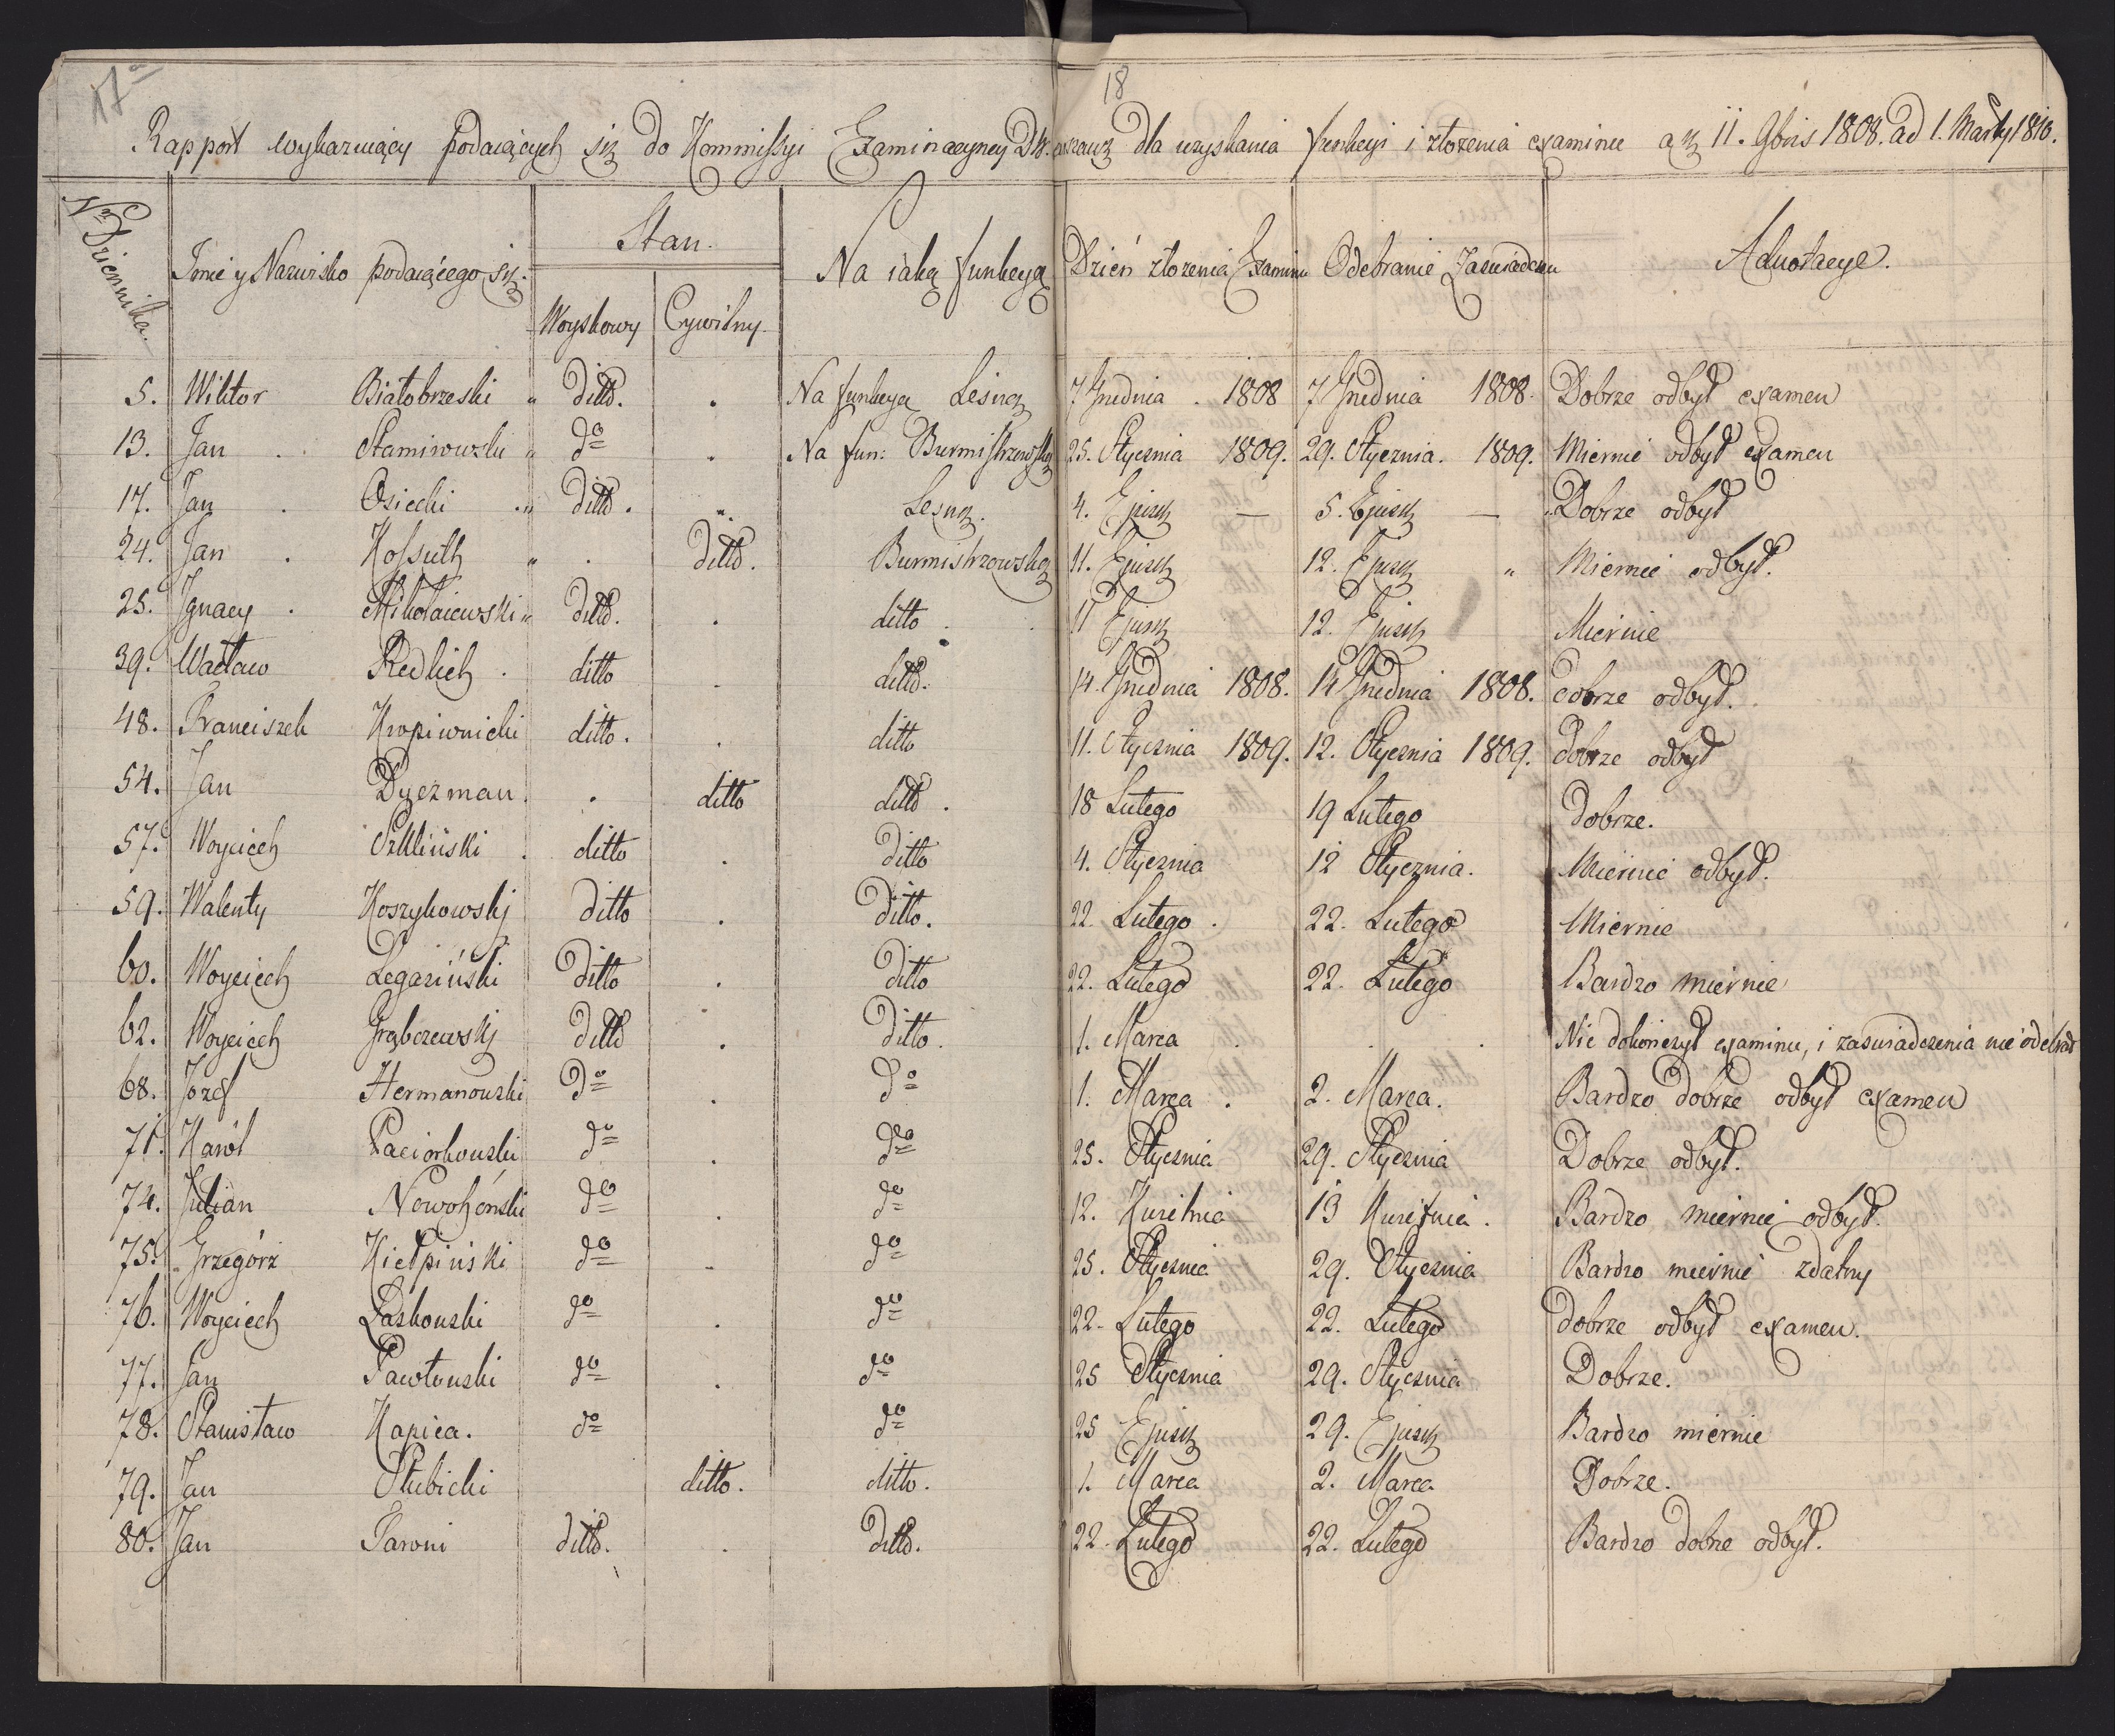 17a
18
Rapport wykazuiący podaiących się do Kommissyi Examinacyiney dla uzyskania funkcyi i złożenia examinu a 11. 9bris 1808. ad 1. Marty 1810.
No Dziennika.
Imie y Nazwisko podaiącego się.
Stan.
Woyskowy
Cywilny.
Na iaką funkcyą
Dzień złożenia Examinu
Odebranie Zaswiadczeń
Adnotacye.
5. Wiktor Białobrzeski " Ditto. . Na funkcyą Lesną 7 Grudnia . 1808 7 Grudnia 1808. Dobrze odbył examen
13. Jan . . " do . Na fun: Burmistrzowską 25. Stycznia 1809. 29. Stycznia. 1809. Miernie odbył examen
17. Jan . Osiecki . " ditto . . Lesną. 4. Ejusd — 5. Ejusd — Dobrze odbył
24. Jan . Kossuth " . ditto. Burmistrzowską 11. Ejusd 12. Ejusd " Miernie odbył.
25. Ignacy . Mikołaiewski " ditto. . ditto . 11 Ejusd 12. Ejusd Miernie
39. Wacław Redlich . ditto . ditto. 14. Grudnia 1808. 14 Grudnia 1808. dobrze odbył.
48. Franciszek Kropiwnicki ditto. . ditto 11. Stycznia 1809. 12. Stycznia 1809. dobrze odbył
54. Jan Dyczman . . ditto ditto . 18 Lutego 19 Lutego Dobrze.
57. Woyciech . ditto . Ditto 4. Stycznia 12 Stycznia. Miernie odbył.
59. Walenty Koszykowskj Ditto . Ditto. 22. Lutego . 22. Lutego Miernie
60. Woyciech Legaziński Ditto . Ditto 22. Lutego 22. Lutego Bardzo miernie
62. Woyciech Grąbczewskj Ditto . Ditto. 1. Marca . . . Nie dokończył examinu, i zaswiadczenia nie odebrał
68. Józef Hermanowski Do . Do 1. Marca . 2. Marca. Bardzo dobrze odbył examen
71. Karól Paciorkowski do . do 25. Stycznia 29. Stycznia Dobrze odbył.
74. Julian do . do 12. Kwietnia 13 Kwietnia . Bardzo miernie odbył.
75. Grzegórz Kiełpiński do . do 25. Stycznia 29. Stycznia Bardzo miernie zdatny
76. Woyciech Laskowski do . do 22. Lutego 22. Lutego dobrze odbył examen.
77. Jan Pawłowski do . do 25 Stycznia 29. Stycznia Dobrze.
78. Stanisław Kapica. do do 25 Ejusd 29. Ejusd Bardzo miernie
79. Jan Słubicki ditto. ditto. 1. Marca 2. Marca Dobrze.
80. Jan Jaroni ditto. . Ditto. 22. Lutego 22. Lutego Bardzo dobrze odbył.